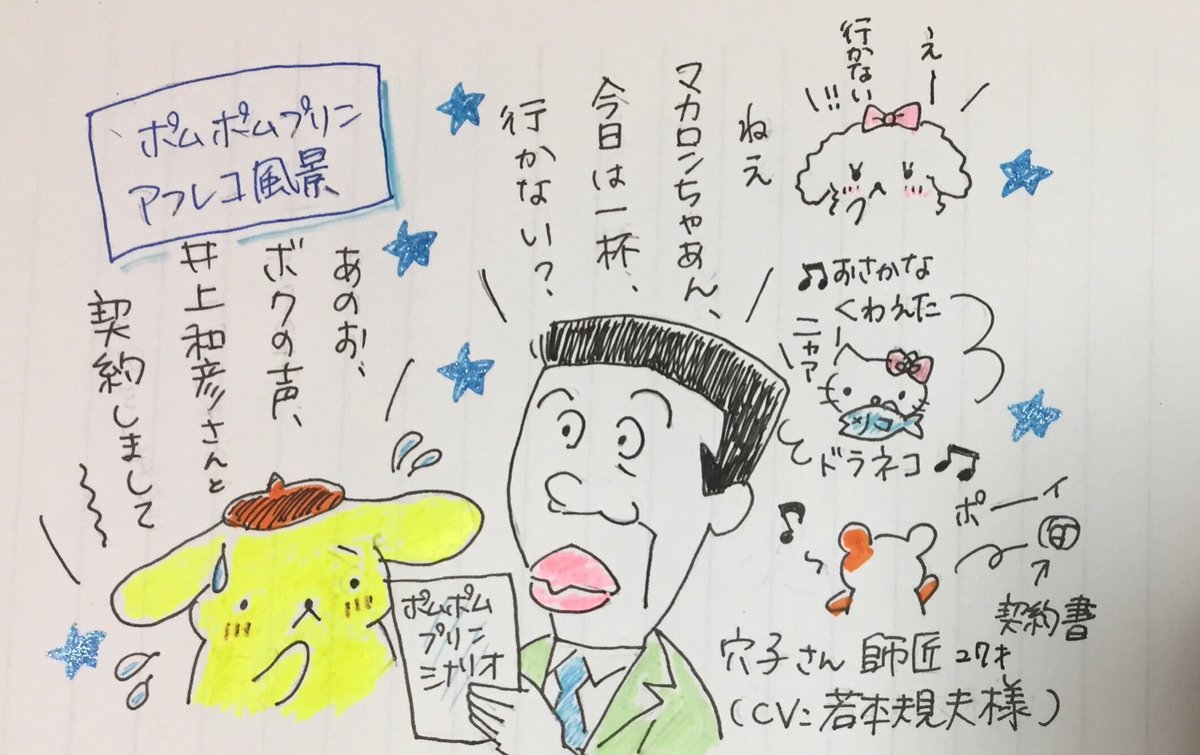 ポムポムプリン
アフレコ風景
え〜
行かない!!
ねえ
マカロンちゃあん、
今日は一杯、
行かない?
あのお、
ボクの声、
井上和彦さんと
契約しまして
♫おさかな
くわえた
ニャア
メリコ
ドラネコ♫
♪
ポーイ
契約書
ポムポム
プリン
シナリオ
穴子さん 師匠 27才
(CV:若本規夫様)